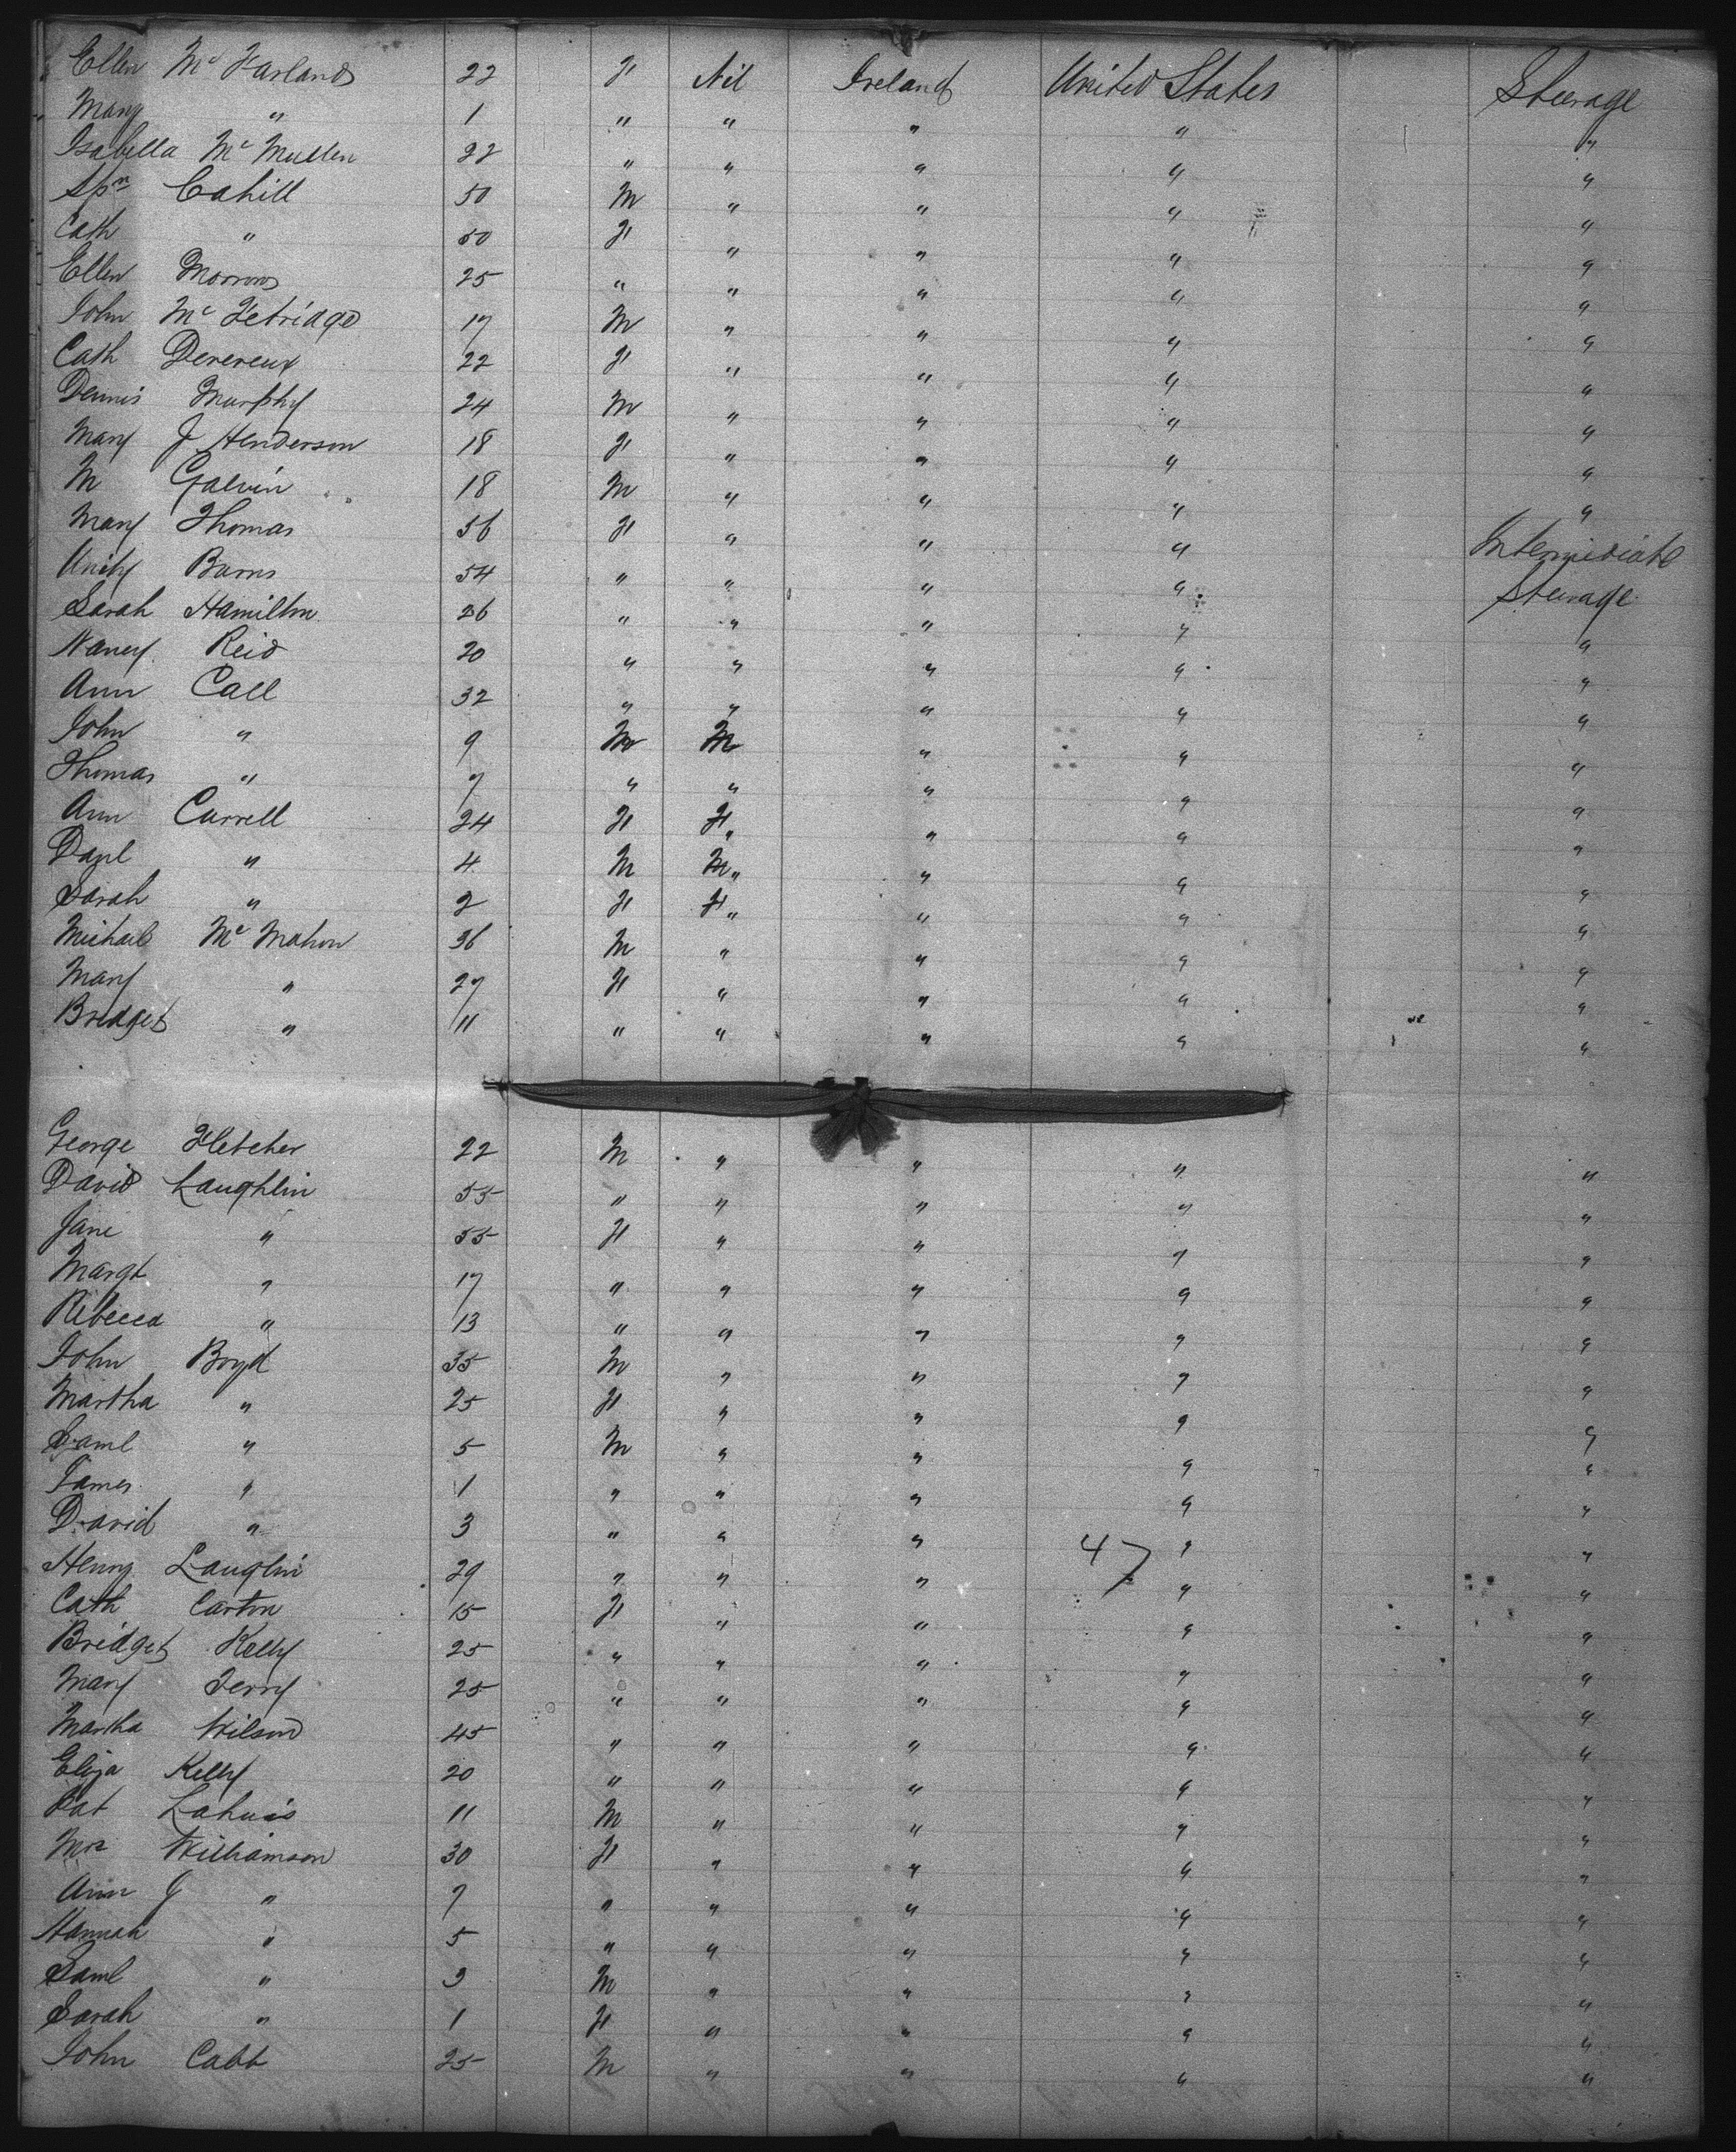 Ellen McFarland 22 F Nil Ireland United States Steerage
Mary " 1 " " " " "
Isabella McMullen 22 " " " " "
Cahill 50 M " " " "
Cath " 50 F " " " "
Ellen Morrow 25 " " " " "
John McFetridge 17 M " " " "
Cath Devereux 22 F " " " "
Dennis Murphy 24 M " " " "
Mary J Henderson 18 F " " " "
M Galvin 18 M " " " "
Mary Thomas 56 F " " " Intermediate
Unity Barns 54 " " " " Steerage
Sarah Hamilton 26 " " " " "
Nancy Reid 20 " " " " "
Ann Call 32 " " " " "
John " 9 M M " " "
Thomas " 7 " " " " "
Ann Currell 24 F F " " " "
Danl " 4 M M " " " "
Sarah " 2 F F " " " "
Michael McMahon 36 M " " " "
Mary " 27 F " " " "
Bridget " 11 " " " " "
George Fletcher 22 M " " " "
David Laughlin 55 " " " " "
Jane " 55 F " " " "
Margt " 17 " " " " "
Rebecca " 13 " " " " "
John Boyd 35 M " " " "
Martha " 25 F " " " "
Saml " 5 M " " " "
James " 1 " " " " "
David " 3 " " " 47 " "
Henry Laughlin 29 " " " " "
Cath Carton 15 F " " " "
Bridget Kelly 25 " " " " "
Mary Terry 25 " " " " "
Martha Wilson 45 " " " " "
Eliza Kelly 20 " " " " "
Pat 11 M " " " "
Mrs Williamson 30 F " " " "
Ann J " 7 " " " " "
Hannah " 5 " " " " "
Saml " 3 M " " " "
Sarah " 1 F " " " "
John Cabb 25 M " " " "